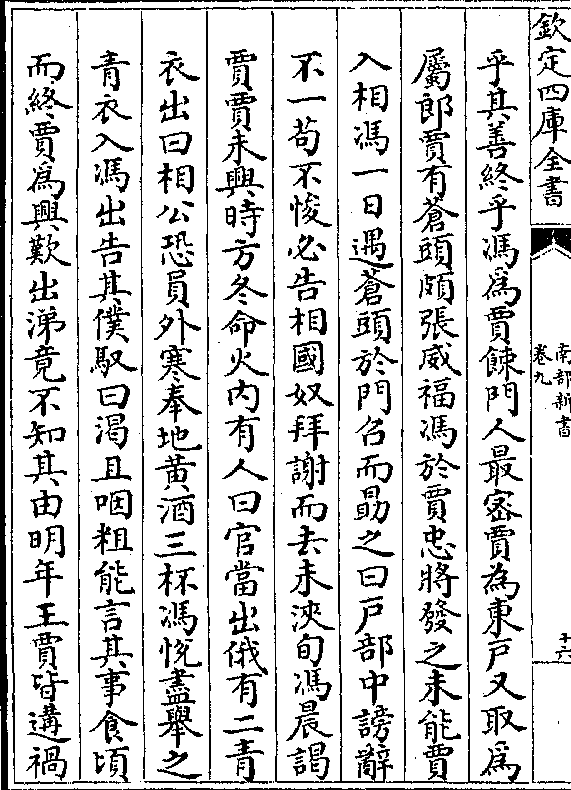 欽定四庫全書
南部新書
卷九
十六
乎其善終乎馮爲賈餗門人最密賈為東戸又取爲
屬郎賈有蒼頭頗張威福馮於賈忠將發之未能賈
入相馮一日遇蒼頭於門召而勗之曰戸部中謗辭
不一苟不悛必告相國奴拜謝而去未浹旬馮晨謁
賈賈未興時方冬命火内有人曰官當出俄有二青
衣出曰相公恐員外寒奉地黄酒三杯馮悦盡舉之
青衣入馮出告其僕馭曰渴且咽粗能言其事食頃
而終賈爲興歎出涕竟不知其由明年王賈皆遘禍